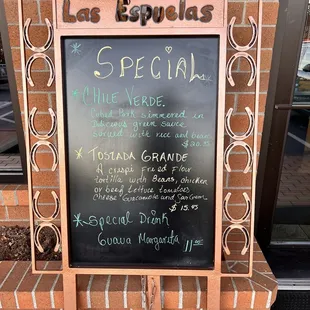 Las Espuelas
Special
Chile Verde
Cubed Pork simmered in
delicious green sauce
served with rice and beans
$20.95
Tostada Grande
A crispi Fried Flour
tortilla with Beans, chicken
or beef lettuce tomatoes
cheese Guacamole and Sour Cream
$15.95
Special Drink
Guava Margarita 11